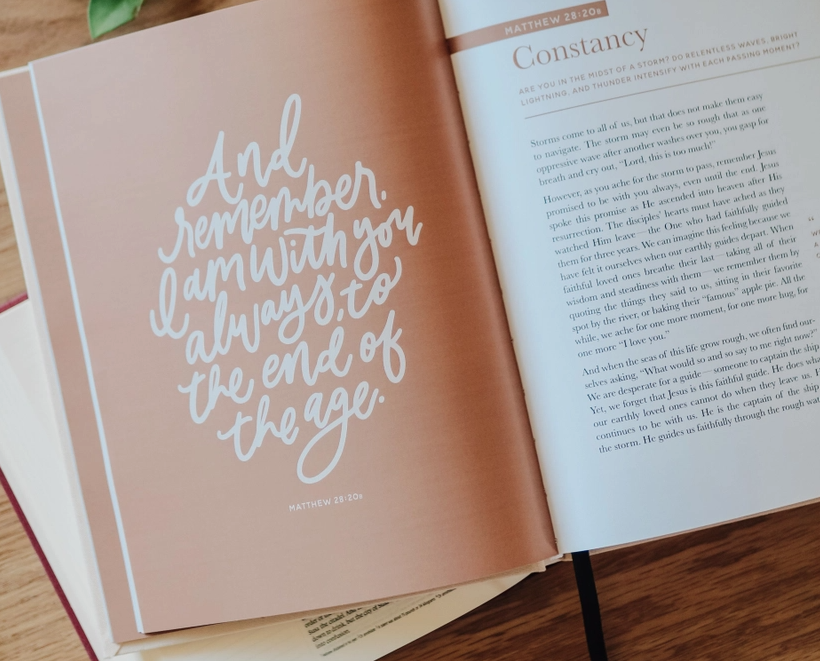 And
remember,
I am with you
always, to
the end of
the age.
MATTHEW 28:20B
MATTHEW 28:20B
Constancy
ARE YOU IN THE MIDST OF A STORM? DO RELENTLESS WAVES, BRIGHT
LIGHTNING, AND THUNDER INTENSIFY WITH EACH PASSING MOMENT?
Storms come to all of us, but that does not make them easy
to navigate. The storm may even be so rough that as one
oppressive wave after another washes over you, you gasp for
breath and cry out, “Lord, this is too much!”
However, as you ache for the storm to pass, remember Jesus
promised to be with you always, even until the end. Jesus
spoke this promise as He ascended into heaven after His
resurrection. The disciples’ hearts must have ached as they
watched Him leave—the One who had faithfully guided
them for three years. We can imagine this feeling because we
have felt it ourselves when our earthly guides depart. When
faithful loved ones breathe their last—taking all of their
wisdom and steadiness with them—we remember them by
quoting the things they said to us, sitting in their favorite
spot by the river, or baking their “famous” apple pie. All the
while, we ache for one more moment, for one more hug, for
one more “I love you.”
And when the seas of this life grow rough, we often find our-
selves asking, “What would so and so say to me right now?”
We are desperate for a guide—someone to captain the ship
Yet, we forget that Jesus is this faithful guide. He does wha
our earthly loved ones cannot do when they leave us. H
continues to be with us. He is the captain of the ship
the storm. He guides us faithfully through the rough wat